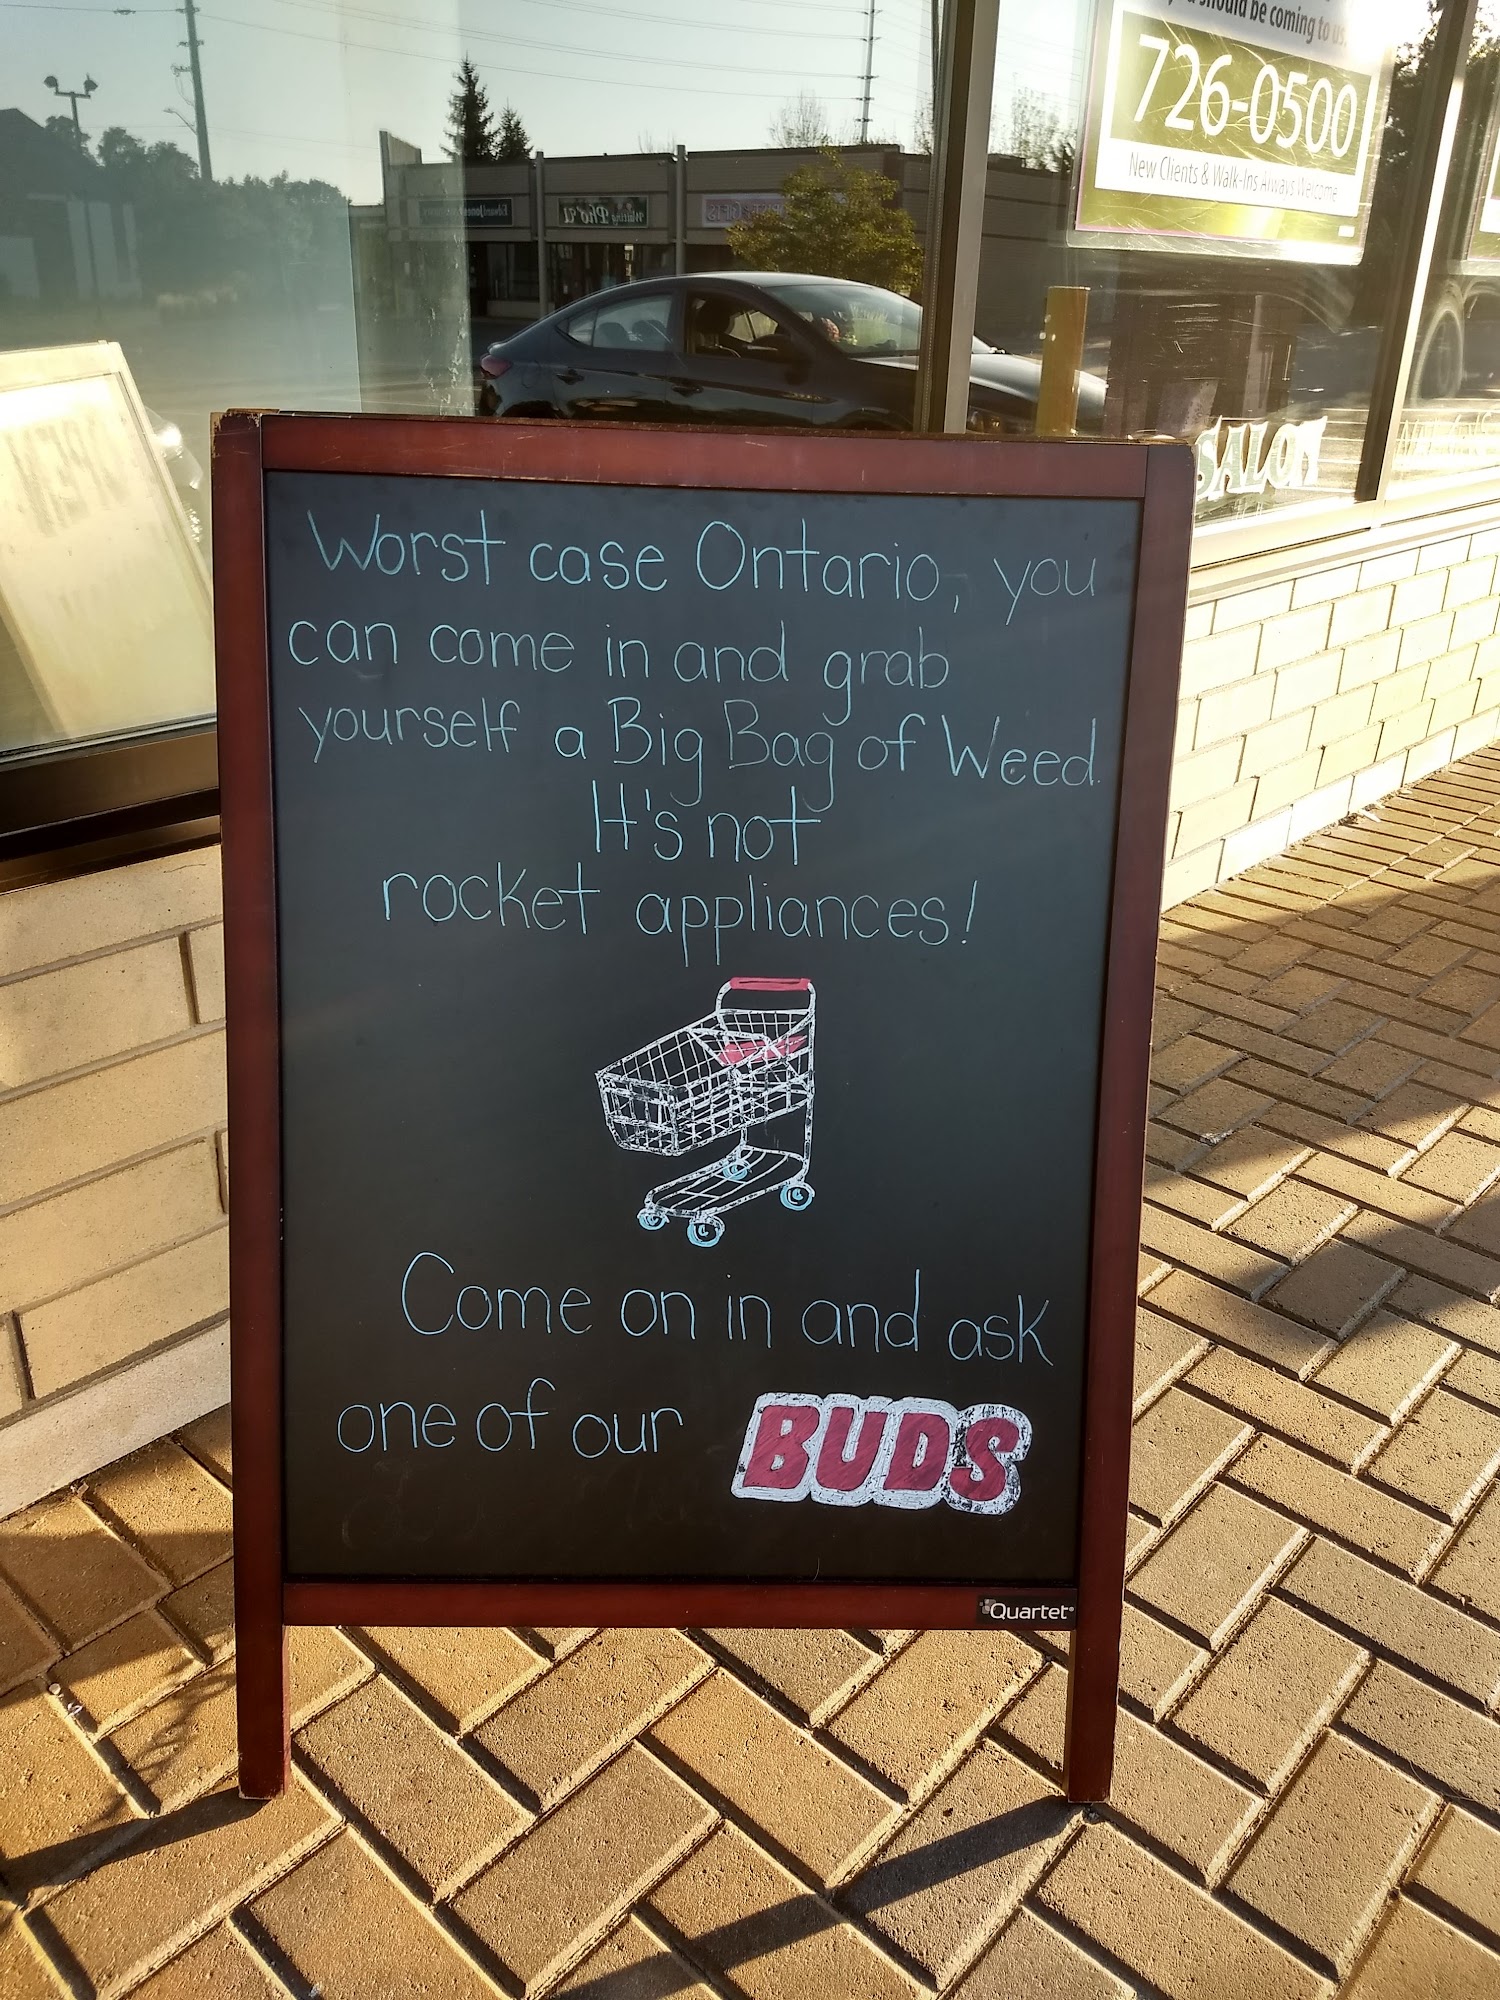 you should be coming to us.
726-0500
New Clients & Walk-Ins Always Welcome
Edward Jones
Pho'U
GIFTS
OPEN
SALON
Worst case Ontario, you
can come in and grab
yourself a Big Bag of Weed.
It's not
rocket appliances!
Come on in and ask
one of our BUDS
Quartet